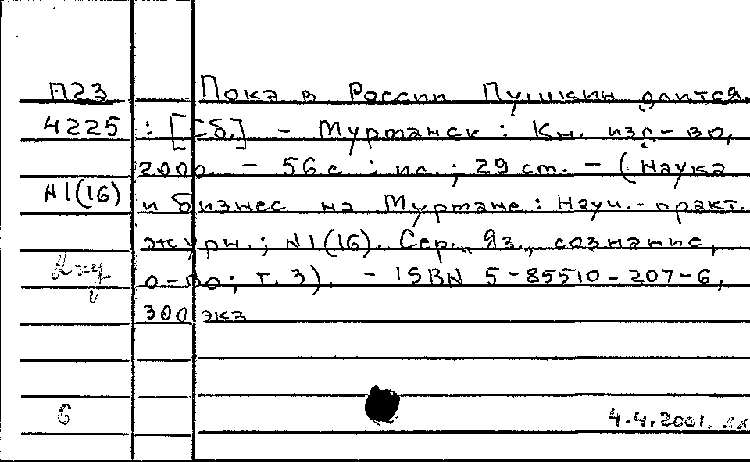 П23 Пока в России Пушкин длится
4225 : [Сб.] - Мурманск : Кн. изд-во,
2000. - 56 с. : ил. ; 29 см. - (Наука
N1(16) и бизнес на Мурмане : Науч.-практ.
журн. ; N1(16). Сер. Яз., сознание,
о-во ; т. 3). - ISBN 5-85510-207-6,
300 экз
6 4.4.2001.